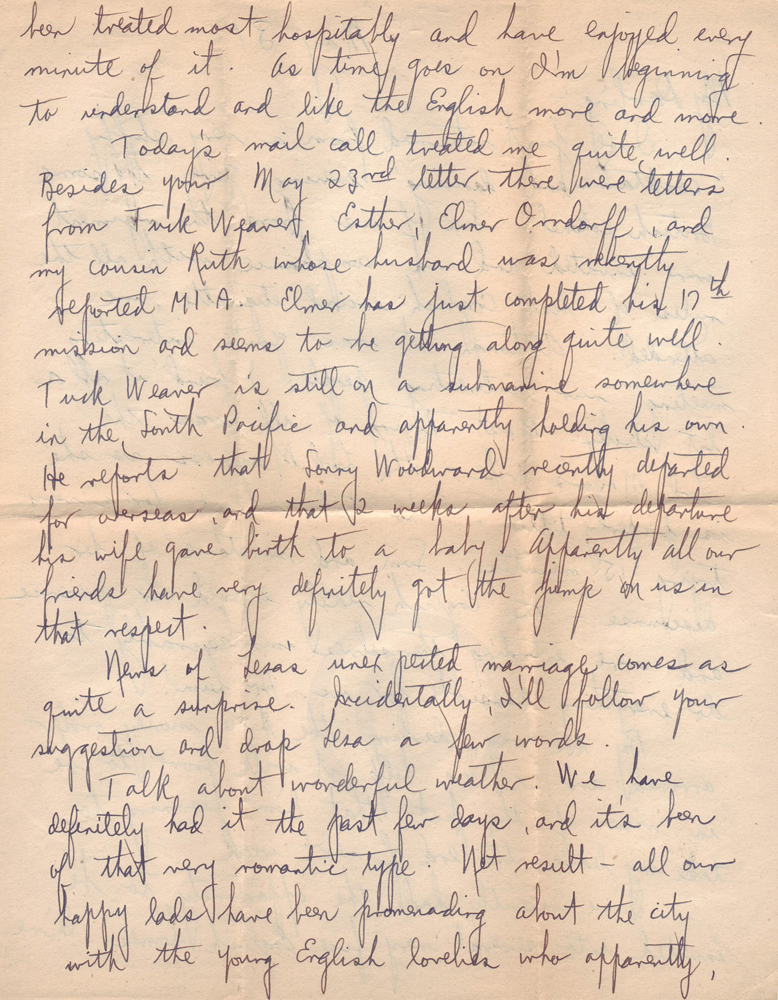 been treated most hospitably and have enjoyed every
minute of it. As time goes on I'm beginning
to understand and like the English more and more.
Today's mail call treated me quite well.
Besides your May 23rd letter, there were letters
from Tuck Weaver, Esther, Elmer Orndorff, and
my cousin Ruth whose husband was recently
reported MIA. Elmer has just completed his 17th
mission and seems to be getting along quite well.
Tuck Weaver is still on a submarine somewhere
in the South Pacific and apparently holding his own.
He reports that Sonny Woodward recently departed
for overseas, and that 2 weeks after his departure
his wife gave birth to a baby. Apparently all our
friends have very definitely got the jump on us in
that respect.
News of Lesa's unexpected marriage comes as
quite a surprise. Incidentally, I'll follow your
suggestion and drop Lesa a few words.
Talk about wonderful weather. We have
definitely had it the past few days, and it's been
of that very romantic type. Net result - all our
happy lads have been promenading about the city
with the young English lovelies who apparently,